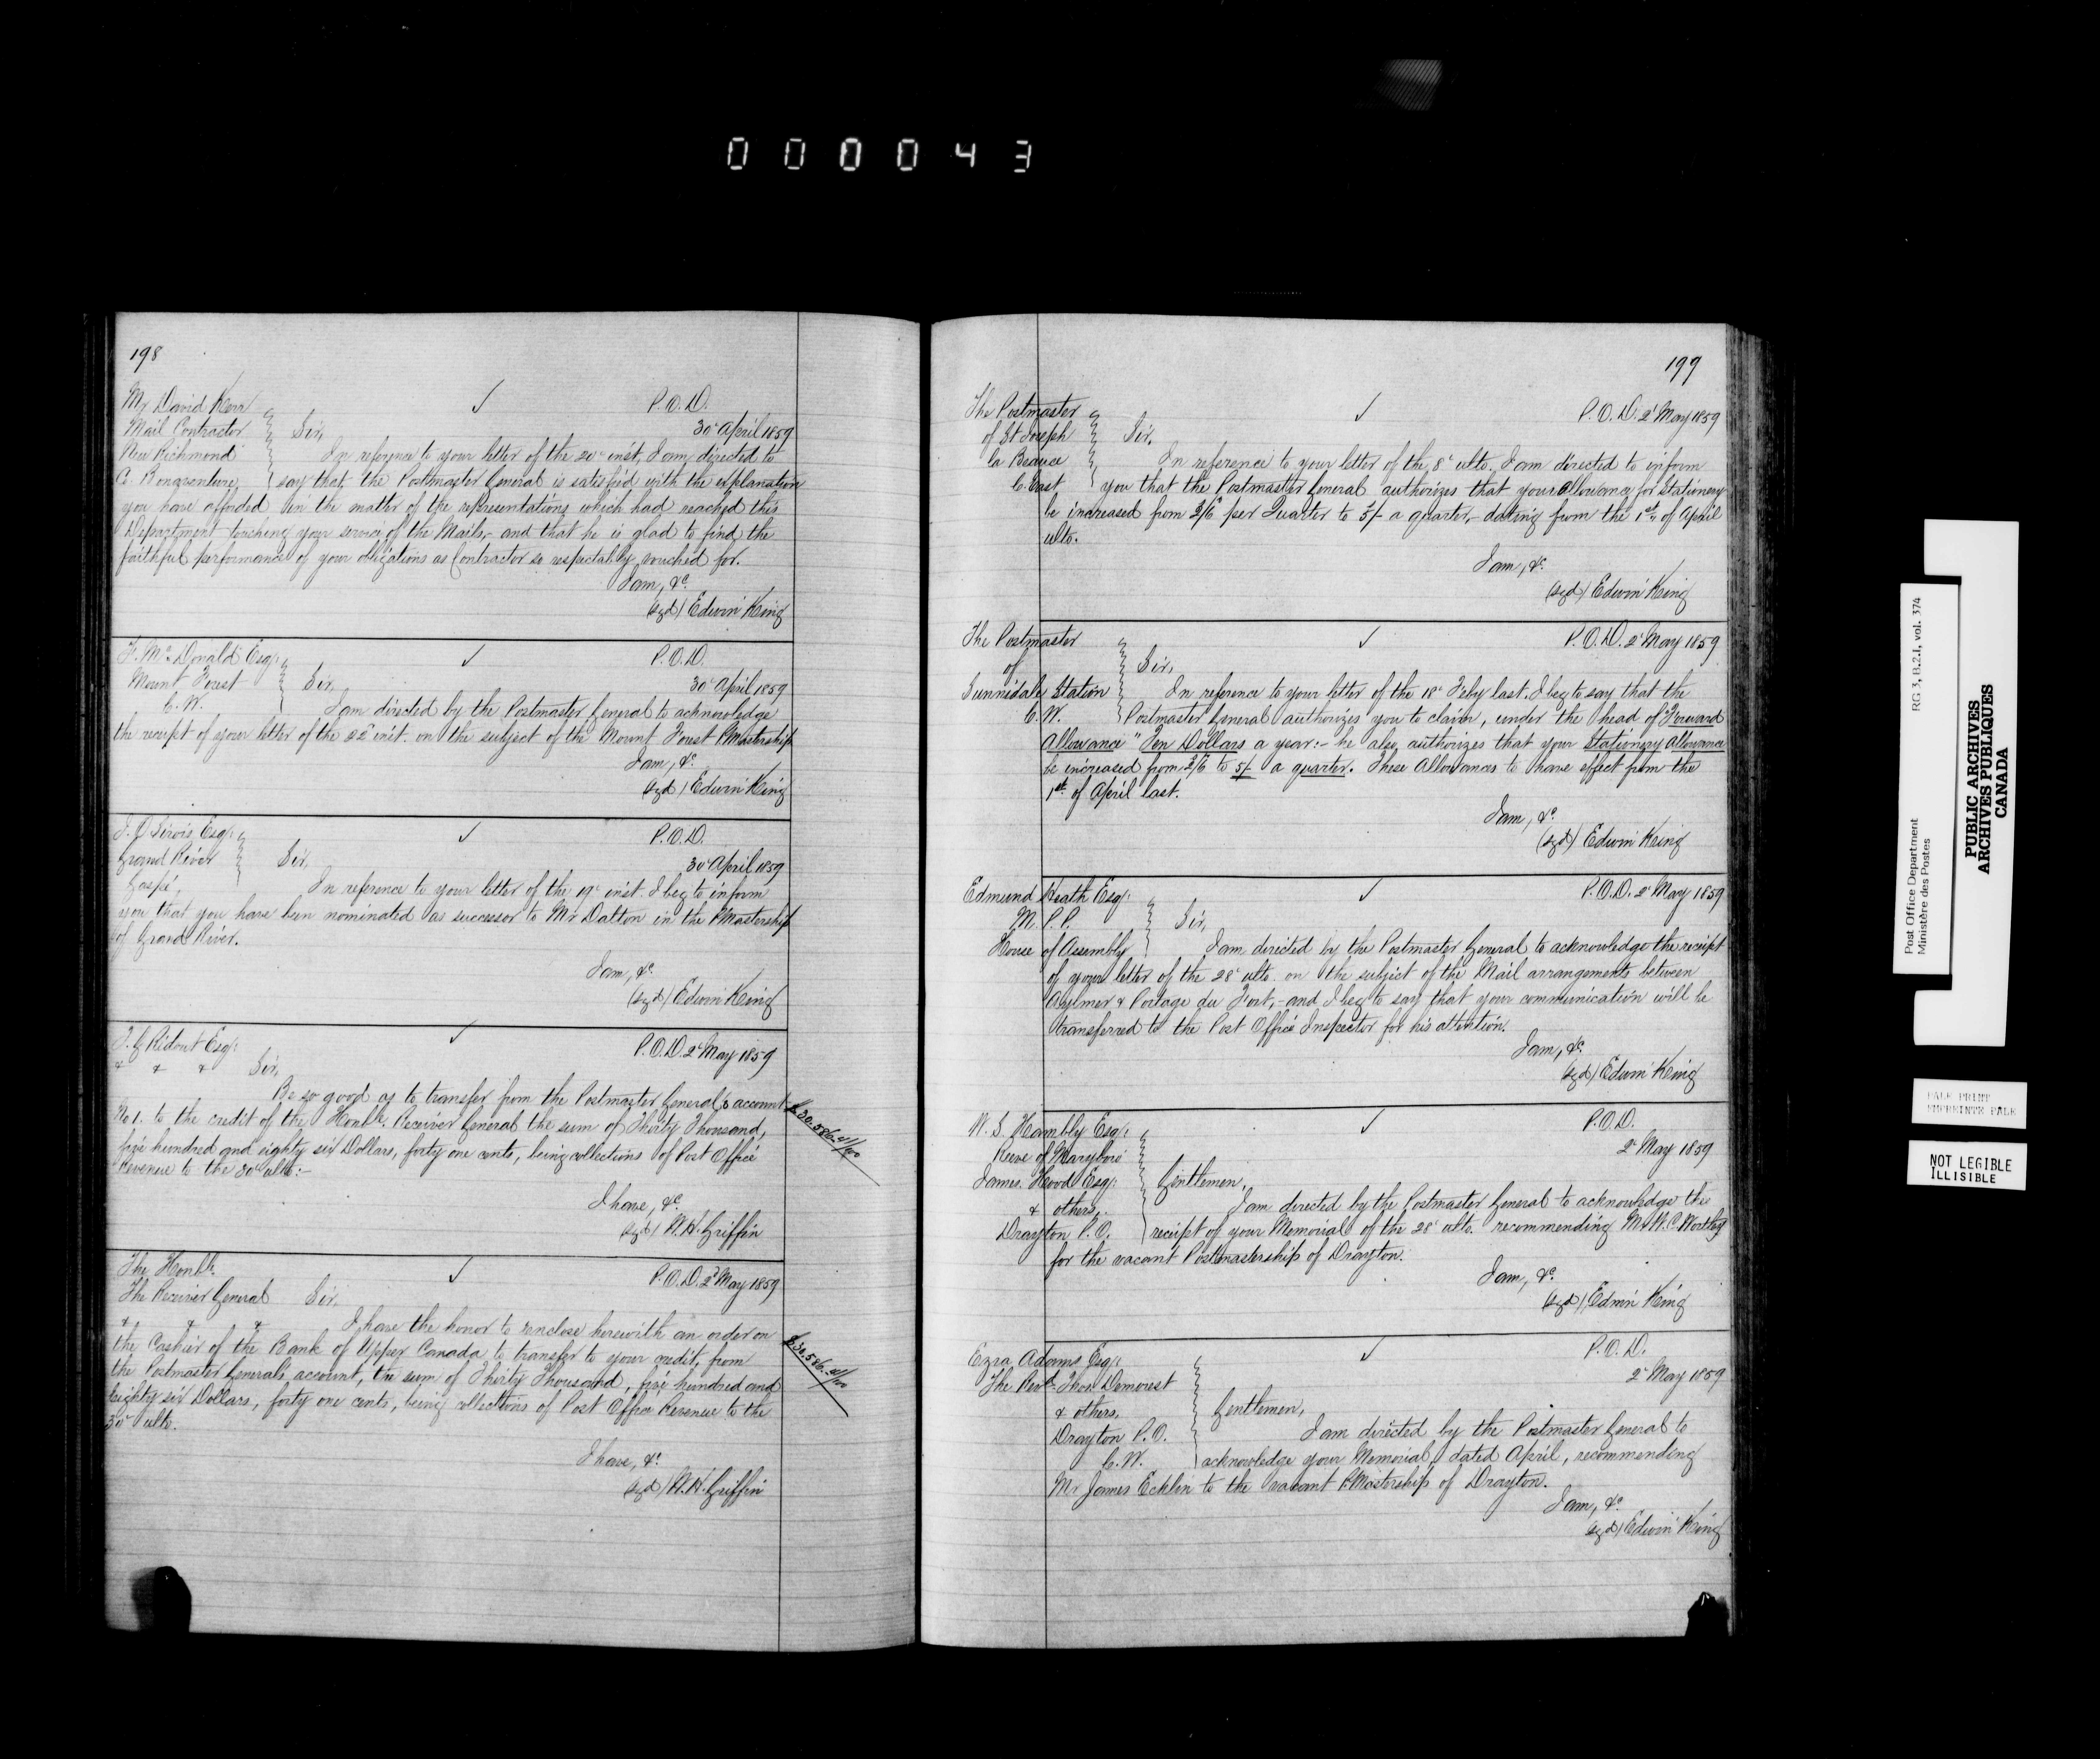 000043
198
Mr David Kerr
Mail Contractor
New Richmond
Co. Bonaventure
P.O.D.
30 April 1859
Sir,
In reference to your letter of the 20 inst, I am directed to
say that the Postmaster General is satisfied with the explanation
you have afforded in the matter of the representations which had reached this
Department touching your service of the Mails,- and that he is glad to find the
faithful performance of your obligations as Contractor so respectably vouched for.
I am, &c.
(sgd) Edwin King
F. McDonald Esq:
Mount Forest
C.W.
P.O.D.
30 April 1859
Sir,
I am directed by the Postmaster General to acknowledge
the receipt of your letter of the 22 inst. on the subject of the Mount Forest P.Mastership
I am, &c.
(sgd) Edwin King
Esq:
Grand River
Gaspé,
P.O.D.
30 April 1859
Sir,
In reference to your letter of the 19 inst. I beg to inform
you that you have been nominated as successor to Mr Dalton in the P.Mastership
of Grand River.
I am, &c.
(sgd) Edwin King
T. G. Ridout Esq:
& & &
P.O.D. 2 May 1859
Sir,
Be so good as to transfer from the Postmaster General's account
No 1. to the credit of the Honble. Receiver General the sum of Thirty Thousand,
five hundred and eighty six Dollars, forty one cents, being collections of Post Office
Revenue to the 30 ulto:-
$30.586.41/100
I have, &c.
(sgd) W.H. Griffin
The Honble.
The Receiver General
& & &
P.O.D. 2d May 1859
Sir,
I have the honor to enclose herewith an order on
the Cashier of the Bank of Upper Canada to transfer to your credit, from
the Postmaster General's account, the sum of Thirty Thousand, five hundred and
eighty six Dollars, forty one cents, being collections of Post Office Revenue to the
30 ulto.
$30.586.41/100
I have, &c.
(sgd) W.H. Griffin
199
The Postmaster
of St Joseph
la Beauce
C. East
P.O.D. 2 May 1859
Sir,
In reference to your letter of the 8 ulto. I am directed to inform
you that the Postmaster General authorizes that your allowance for Stationery
be increased from 2/6 per Quarter to 5/- a quarter,- dating from the 1st of April
ulto.
I am, &c.
(sgd) Edwin King
The Postmaster
of
Sunnidale Station
C.W.
P.O.D. 2 May 1859
Sir,
In reference to your letter of the 18 Feby last. I beg to say that the
Postmaster General authorizes you to claim, under the head of "Forward
Allowance" Ten Dollars a year:- he also authorizes that your Stationery Allowance
be increased from 2/6 to 5/- a quarter. These Allowances to have effect from the
1st of April last.
I am, &c.
(sgd) Edwin King
Edmund Heath Esq:
M.P.P.
House of Assembly
P.O.D. 2 May 1859
Sir,
I am directed by the Postmaster General to acknowledge the receipt
of your letter of the 28 ulto. on the subject of the Mail arrangements between
Aylmer & Portage du Fort,- and I beg to say that your communication will be
transferred to the Post Office Inspector for his attention.
I am, &c.
(sgd) Edwin King
W. S. Hambly Esq:
Reeve of Maryboro
James Hood Esq:
& others,
Drayton P.O.
P.O.D.
2 May 1859
Gentlemen,
I am directed by the Postmaster General to acknowledge the
receipt of your Memorial of the 28 ulto. recommending Mr W.C. Wortley
for the vacant Postmastership of Drayton.
I am, &c.
(sgd) Edwin King
Ezra Adams Esq:
The Revd. Thos Demorest
& others,
Drayton P.O.
C.W.
P.O.D.
2 May 1859
Gentlemen,
I am directed by the Postmaster General to
acknowledge your Memorial, dated April, recommending
Mr James Ecklin to the vacant P.Mastership of Drayton.
I am, &c.
(sgd) Edwin King
Post Office Department
Ministère des Postes
RG 3, B.2.I, vol. 374
PUBLIC ARCHIVES
ARCHIVES PUBLIQUES
CANADA
PALE PRINT
EMPREINTE PALE
NOT LEGIBLE
ILLISIBLE